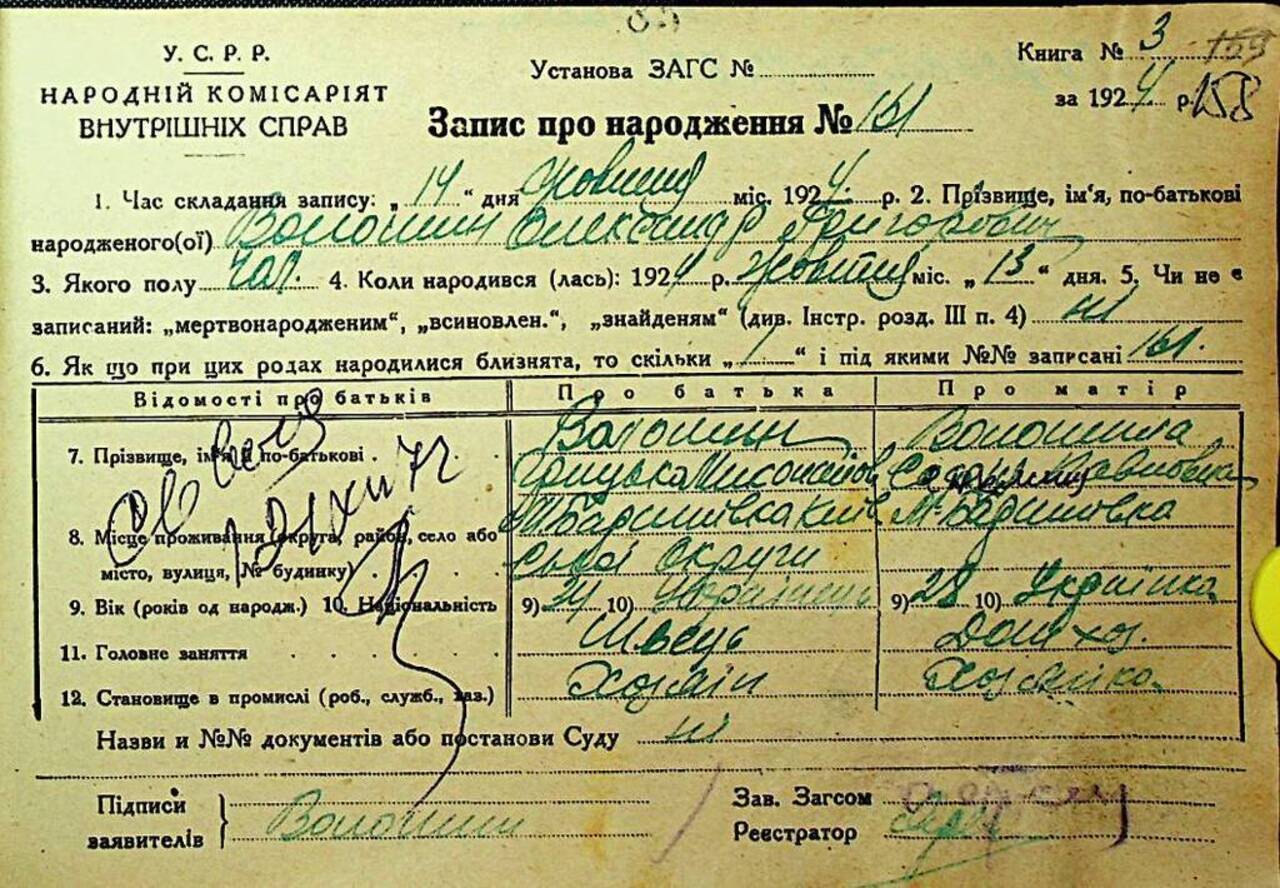 У. С. Р. Р.
НАРОДНІЙ КОМІСАРІЯТ
ВНУТРІШНІХ СПРАВ
Установа ЗАГС №
Книга № 3
за 1924 р. 158
Запис про народження № 161
1. Час складання запису: „14“ дня Жовтня міс. 1924 р. 2. Прізвище, ім'я, по-батькові
народженого(ої) Волошин Олександр Григорович
3. Якого полу чол. 4. Коли народився (лась): 1924 р. Жовтня міс. „13“ дня. 5. Чи не є
записаний: „мертвонародженим“, „всиновлен.“, „знайденям“ (див. Інстр. розд. III п. 4) ні
6. Як що при цих родах народилися близнята, то скільки „1“ і під якими №№ записані 161.
Відомості про батьків Про батька Про матір
7. Прізвище, ім'я й по-батькові Волошин Волошина
Грицька
8. Місце проживання (округа, район, село або М. Баришівка Київ М. Баришівка
місто, вулиця, № будинку) ської Округи
9. Вік (років од народж.) 10. Національність 9) 34 10) Українець 9) 28 10) Українка
11. Головне заняття Швець Дом хоз.
12. Становище в промислі (роб., служб., хаз.) Хозяін Хозяйка
Назви и №№ документів або постанови Суду ні
Підписи
заявителів } Волошин
Зав. Загсом
Реєстратор